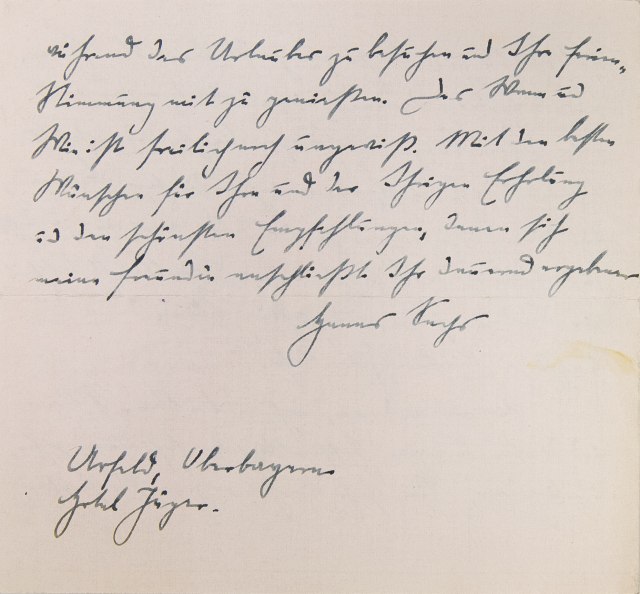 während des Urlaubes zu besuchen und Ihre Ferien-
Stimmung mit zu genießen. Das Wann und
Wie ist freilich noch ungewiß. Mit den besten
Wünschen für Ihre und der Ihrigen Erholung
und den schönsten Empfehlungen, denen sich
meine Freundin anschließt Ihr dauernd ergebener
Hanns Sachs
Urfeld, Oberbayern
Hotel Jäger.